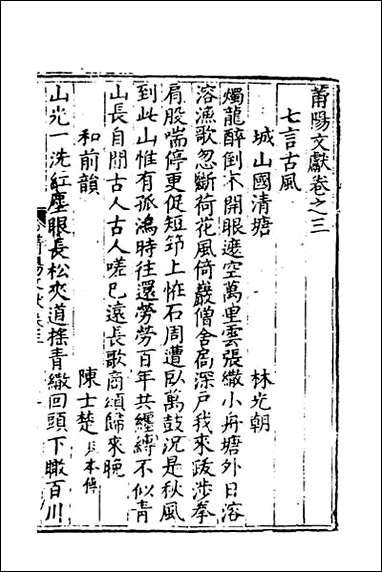 莆陽文獻卷之三
七言古風
城山國清塘 林光朝
燭龍醉倒不開眼遮空萬里雲張繖小舟塘外日溶
溶漁歌忽斷荷花風倚巖僧舍扄深戶我來跋涉拳
肩股喘停更促短笻上恠石周遭臥萬鼓況是秋風
到此山惟有孤鴻時往還勞勞百年共纏縛不似青
山長自閒古人古人嗟已遠長歌商頌歸來晚
和前韻 陳士楚 本傳
山光一洗紅塵眼長松夾道搖青繖回頭下瞰百川